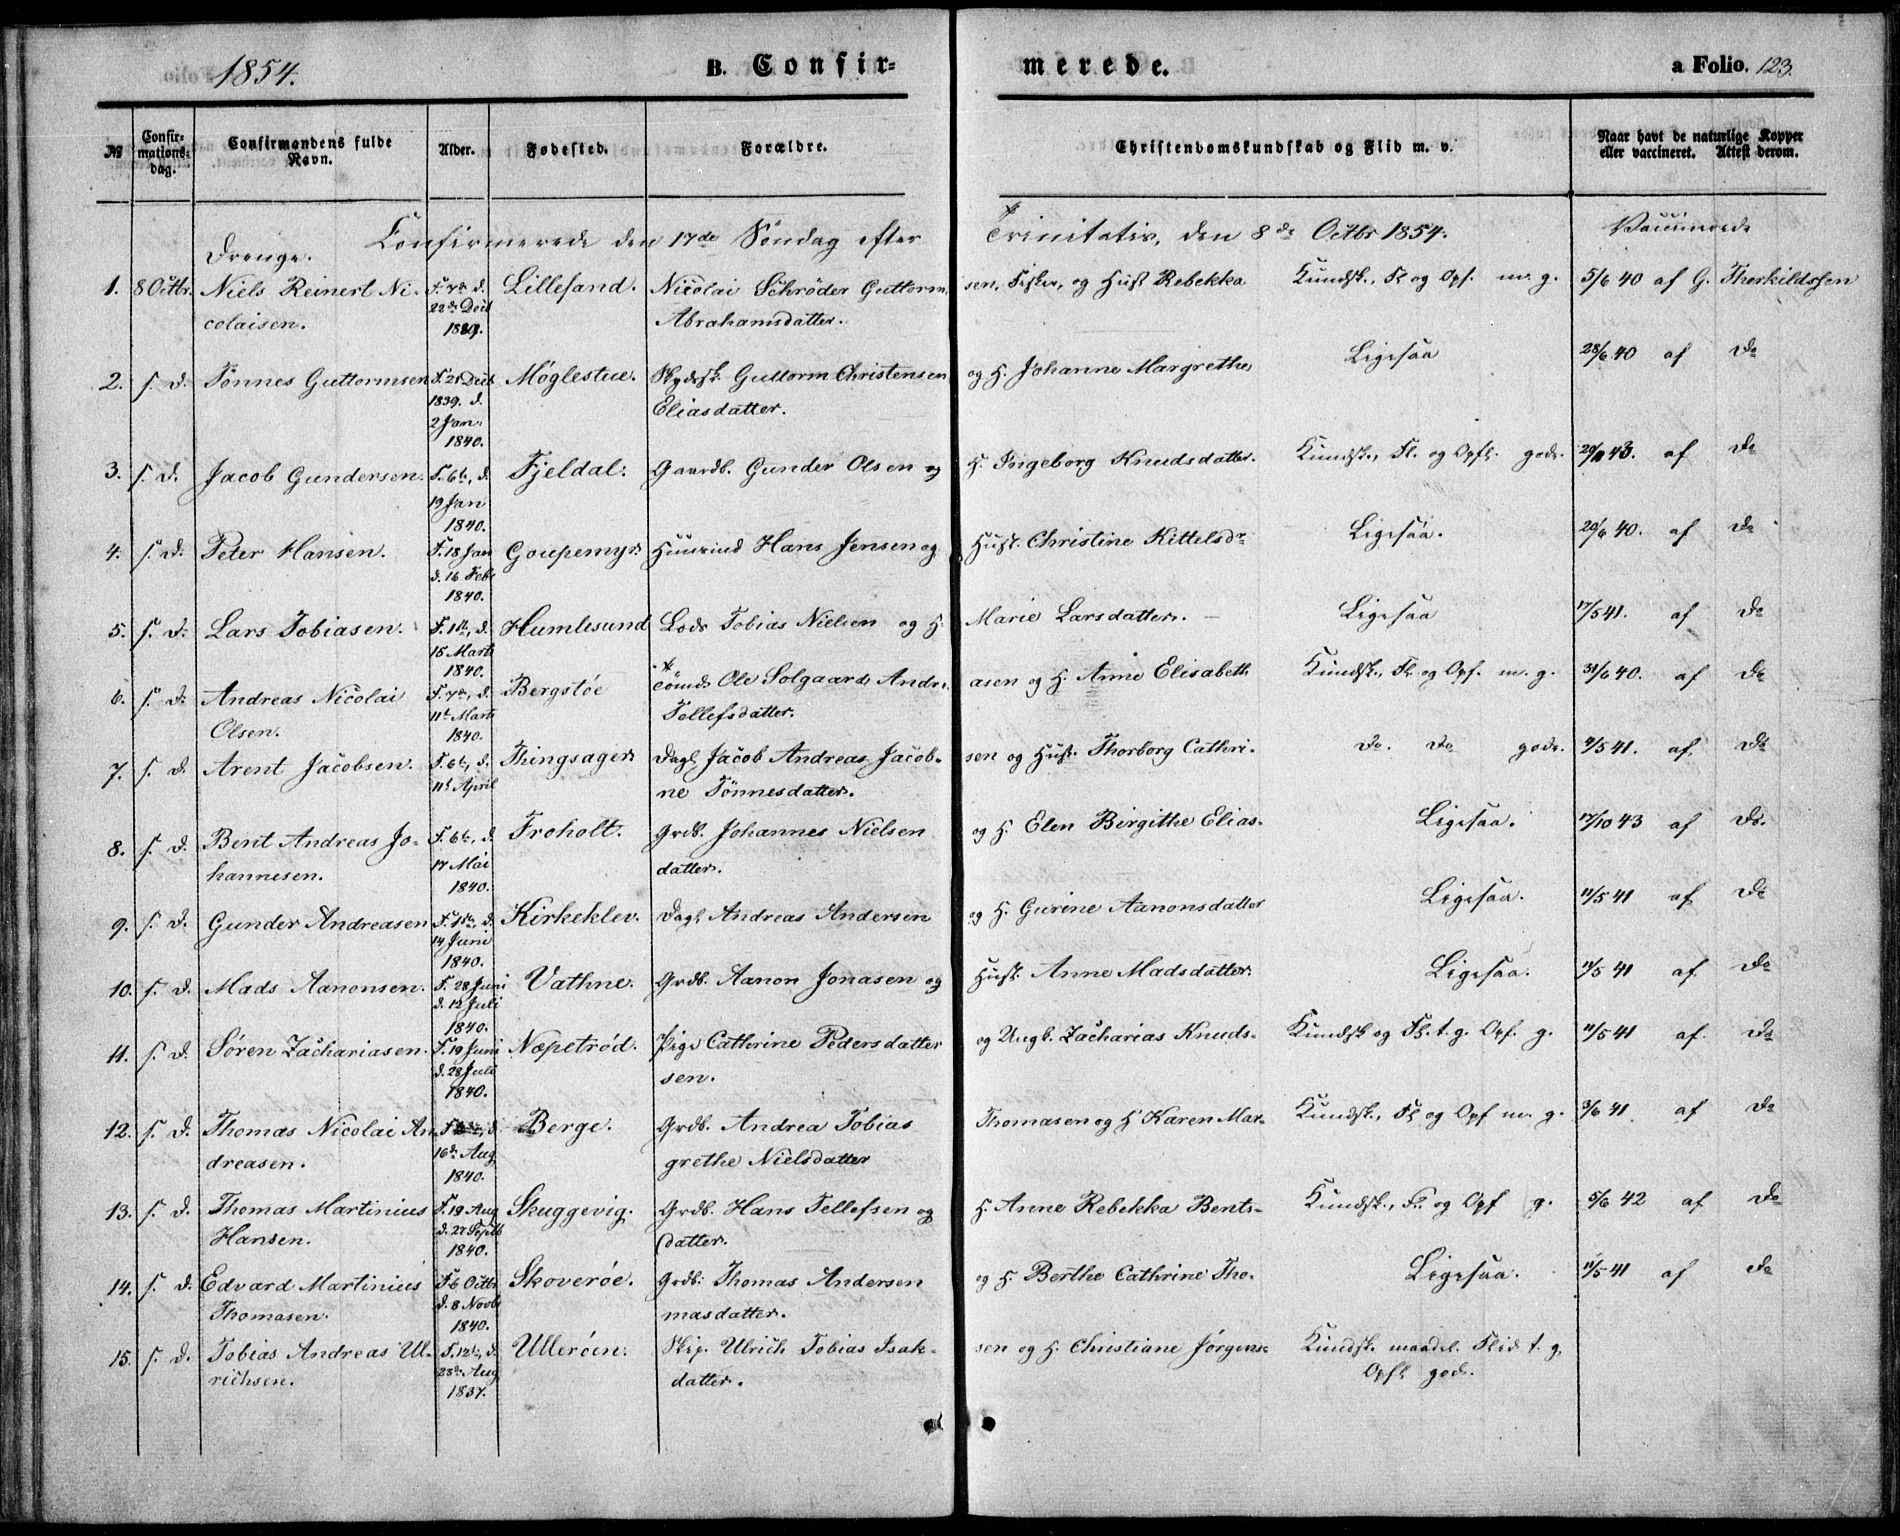 1854.
B. Confir-
merede.
a Folio. 123.
№
Confir-
mations-
dag.
Confirmandens fulde
Navn.
Alder.
Fødested.
Forældre.
Christendomskundskab og Flid m. v.
Naar havt de naturlige Kopper
eller vaccineret. Attest derom.
Confirmerede den 17de Søndag efter Trinitatis, den 8de Octbr 1854.
Vaccinerede
Drenge.
1. 8 Octbr. Niels Reinert Ni- F. 7de d. Lillesand. Nicolai Schrøder Guttorm- sen, Fisker, og Hust Rebekka Kundsk., Fl og Opf. m. g. 5/6 40 af G. Thorkildssen
colaisen. 22de Decb Abrahamsdatter.
1839.
2. s. d. Tønnes Guttormsen F. 21 Decb Møglestue. Skydssk. Guttorm Christensen og H. Johanne Margrethe Ligesaa 28/6 40 af Do
1839. d. Eliasdatter.
2 Jan.
1840.
3. s. d. Jacob Gundersen. F. 6te, d. Fjeldal. Gaardb. Gunder Olsen og H. Ingeborg Knudsdatter. Kundsk., Fl. og Opf. god. 43. af Do
19 Jan
1840.
4. s. d. Peter Hansen. F. 18 Jan Goupemyr Huusmd Hans Jensen og Hust. Christine Kittelsdr Ligesaa. 29/6 40. af Do
d. 16 Feb
1840.
5. s. d. Lars Tobiasen. F. 1ste, d. Humlesund Lods Tobias Nielsen og H. Marie Larsdatter. Ligesaa 17/5 41. af Do
15 Marts
1840.
6. s. d. Andreas Nicolai F. 7de, d. Bergstøe Tømd Ole Solgaard Andre- asen og H. Anne Elisabeth Kundsk., Fl. og Opf. m. g. 31/6 40. af Do
Olsen. 11te Marts Tellefsdatter.
1840.
7. s. d. Arent Jacobsen. F. 6te, d. Thingsager Dagl. Jacob Andreas Jacob- sen og Hust. Thorborg Cathri- Do. Do god. /5 41. af Do
11te April ne Tønnesdatter.
8. s. d. Bent Andreas Jo- F. 6te, d. Froholt. Grdb. Johannes Nielsen og H. Elen Birgithe Elias- Ligesaa. 17/10 43 af Do.
hannesen. 17 Mai datter.
1840.
9. s. d. Gunder Andreasen F. 1ste, d. Kirkeklev. Dagl. Andreas Andersen og H. Gurine Aanonsdatter Ligesaa. 11/5 41 af Do
14 Juni
1840.
10. s. d. Mads Aanonsen. F. 28 Juni Vathne. Grdb. Aanon Jonasen og Hust. Anne Madsdatter Ligesaa. 11/5 41 af Do
d. 12 Juli
1840.
11. s. d. Søren Zachariasen. F. 19 Juni Næpetrød. Pige Cathrine Pedersdatter og Ungk. Zacharias Knuds- Kundsk og Fl. t. g. Opf. g. 11/5 41 af Do
d. 28 Juli sen.
1840.
12. s. d. Thomas Nicolai An- d. Berge. Grdb. Andrea Tobias Thomasen og H Karen Mar- Kundsk., Fl og Opf m. g. 3/6 41. af Do
dreasen. 16de Aug grethe Nielsdatter
1840.
13. s. d. Thomas Martinius F. 19 Aug Skuggevig. Grdb. Hans Tellefsen og H. Anne Rebekka Bents- Kundsk., Fl. og Opf g. 5/6 42 af Do
Hansen. d. 27 Septb datter.
1840.
14. s. d. Edvard Martinius F. 6 Octbr Skoverøe. Grdb. Thomas Andersen og H. Berthe Cathrine Tho- Ligesaa. 11/5 41 af Do
Thomasen. d. 8 Novb masdatter.
1840.
15. s. d. Tobias Andreas Ul- F. 12te, d. Ullerøen. Skip. Ulrich Tobias Isak- sen og H. Christiane Jørgens- Kundsk. maadel. Flid t. g.
richsen. 23de Aug datter. Opf god.
1837.